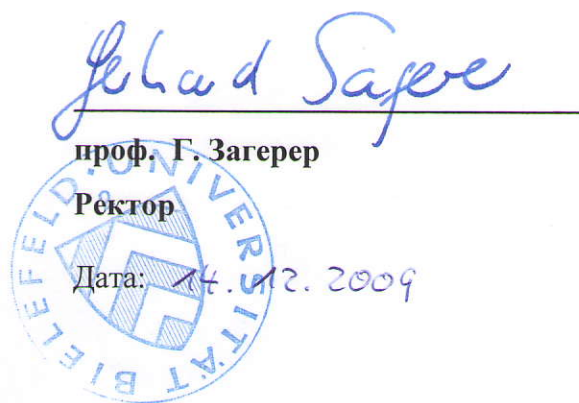 Gerhard Sagerer
проф. Г. Загерер
Ректор
Дата: 14.12.2009
UNIVERSITÄT BIELEFELD